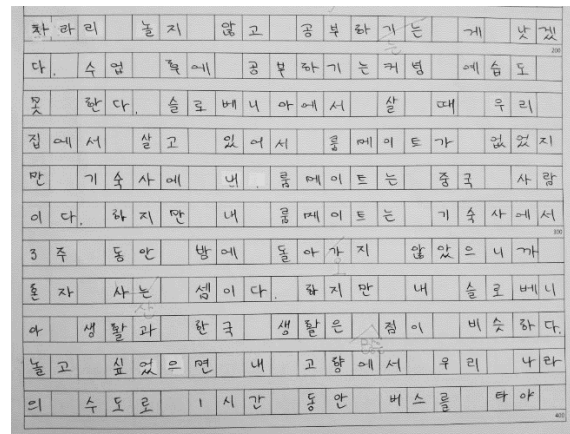 차라리 놀지 않고 공부하기는 게 낫겠
는
200
다. 수업 후에 공부하기는커녕 예습도
못 한다. 슬로베니아에서 살 때 우리
집에서 살고 있어서 룸메이트가 없었지
만 기숙사에 내 룸메이트는 중국 사람
이다. 하지만 내 룸메이트는 기숙사에서
300
3주 동안 밤에 돌아가지 않았으니까
오
혼자 사는 셈이다. 하지만 내 슬로베니
산
아 생활과 한국 생활은 점이 비슷하다.
많은
놀고 싶었으면 내 고향에서 우리 나라
의 수도로 1시간 동안 버스를 타야
400